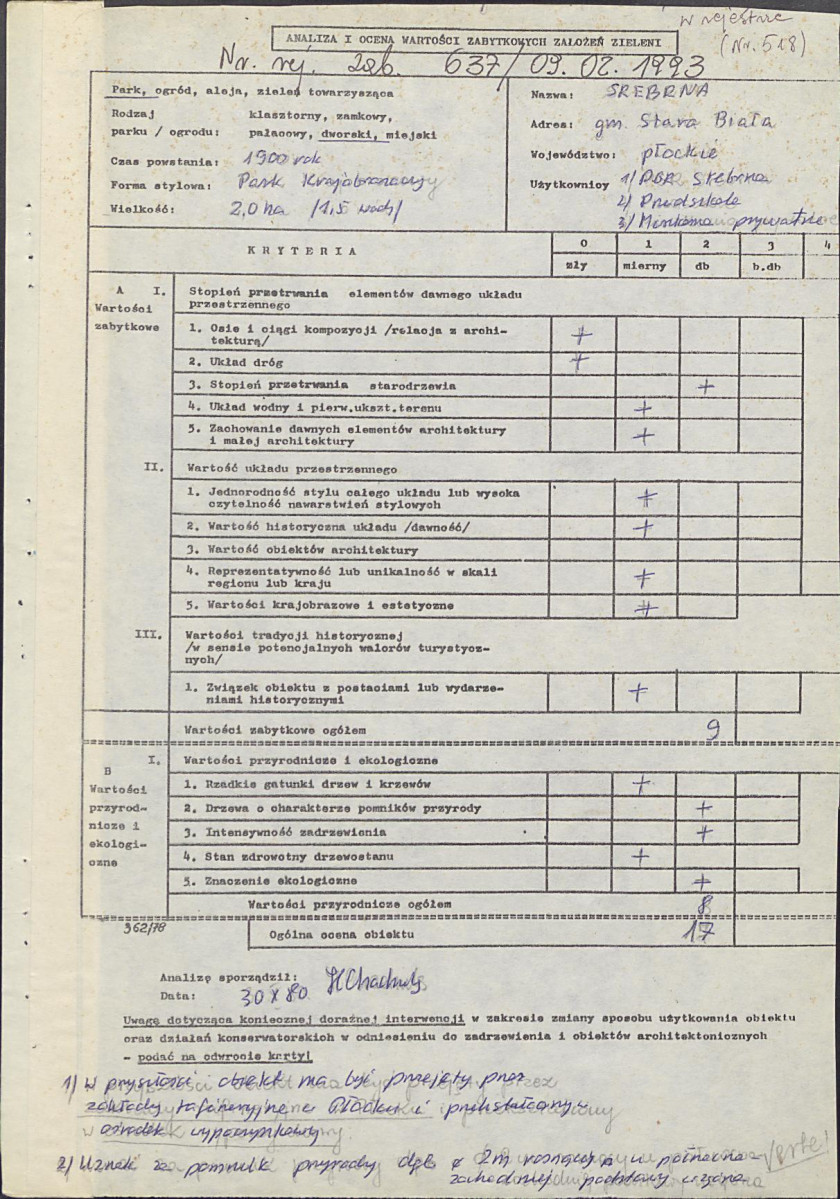 w rejestrze
(Nr. 518)
ANALIZA I OCENA WARTOŚCI ZABYTKOWYCH ZAŁOŻEŃ ZIELENI
Nr. rej. zab. 637/09.02.1993
Park, ogród, aleja, zieleń towarzysząca
Rodzaj klasztorny, zamkowy,
parku / ogrodu: pałacowy, dworski, miejski
Czas powstania: 1900 rok
Forma stylowa: Park Krajobrazowy
Wielkość: 2,0 ha /1,5 wody/
Nazwa: SREBRNA
Adres: gm. Stara Biała
Województwo: płockie
Użytkownicy 1/ PGR Srebrna
2/ Przedszkole
3/ Mieszkania prywatne
KRYTERIA 0 1 2 3 4
zły mierny db b.db
A I. Stopień przetrwania elementów dawnego układu
Wartości przestrzennego
zabytkowe
1. Osie i ciągi kompozycji /relacja z archi- +
tekturą/
2. Układ dróg +
3. Stopień przetrwania starodrzewia +
4. Układ wodny i pierw.ukszt.terenu +
5. Zachowanie dawnych elementów architektury +
i małej architektury
II. Wartość układu przestrzennego
1. Jednorodność stylu całego układu lub wysoka +
czytelność nawarstwień stylowych
2. Wartość historyczna układu /dawność/ +
3. Wartość obiektów architektury
4. Reprezentatywność lub unikalność w skali +
regionu lub kraju
5. Wartości krajobrazowe i estetyczne +
III. Wartości tradycji historycznej
/w sensie potencjalnych walorów turystycz-
nych/
1. Związek obiektu z postaciami lub wydarze- +
niami historycznymi
Wartości zabytkowe ogółem 9
B I. Wartości przyrodnicze i ekologiczne
Wartości
przyrod-
nicze i
ekologi-
czne
1. Rzadkie gatunki drzew i krzewów +
2. Drzewa o charakterze pomników przyrody +
3. Intensywność zadrzewienia +
4. Stan zdrowotny drzewostanu +
5. Znaczenie ekologiczne +
Wartości przyrodnicze ogółem 8
962/78
Ogólna ocena obiektu 17
Analizę sporządził:
Data: 30 X 80
Uwagę dotyczącą koniecznej doraźnej interwencji w zakresie zmiany sposobu użytkowania obiektu
oraz działań konserwatorskich w odniesieniu do zadrzewienia i obiektów architektonicznych
- podać na odwrocie karty!
1) W przyszłości obiekt ma być przejęty przez
zakłady rafineryjne w Płocku i przekształcony w
ośrodek wypoczynkowy
2) Uznać za pomnik przyrody dąb ø 2m rosnący w północno-
zachodniej